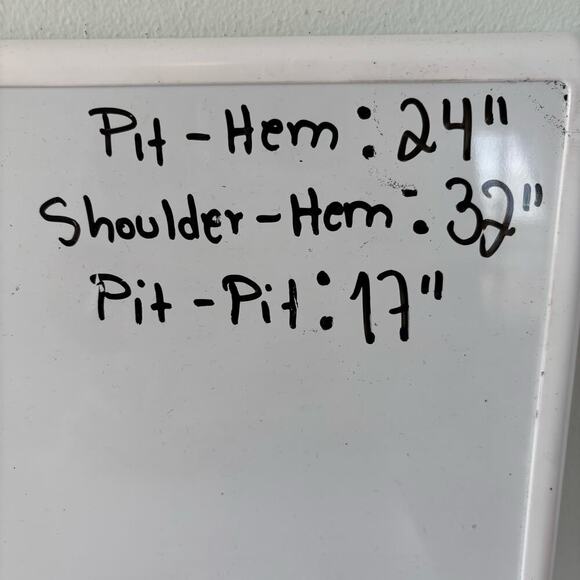 Pit - Hem : 24"
Shoulder - Hem : 32"
Pit - Pit : 17"